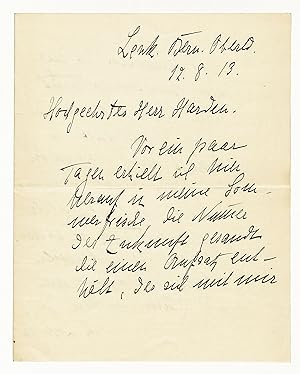 Lenk. Bern. Oberld.
12. 8. 13.
Hochgeehrter Herr Harden.
Vor ein paar
Tagen erhielt ich hier
herauf in meine Som-
merfrische die Numer
der Zukunft gesandt
die einen Aufsatz ent-
hält, der sich mit mir